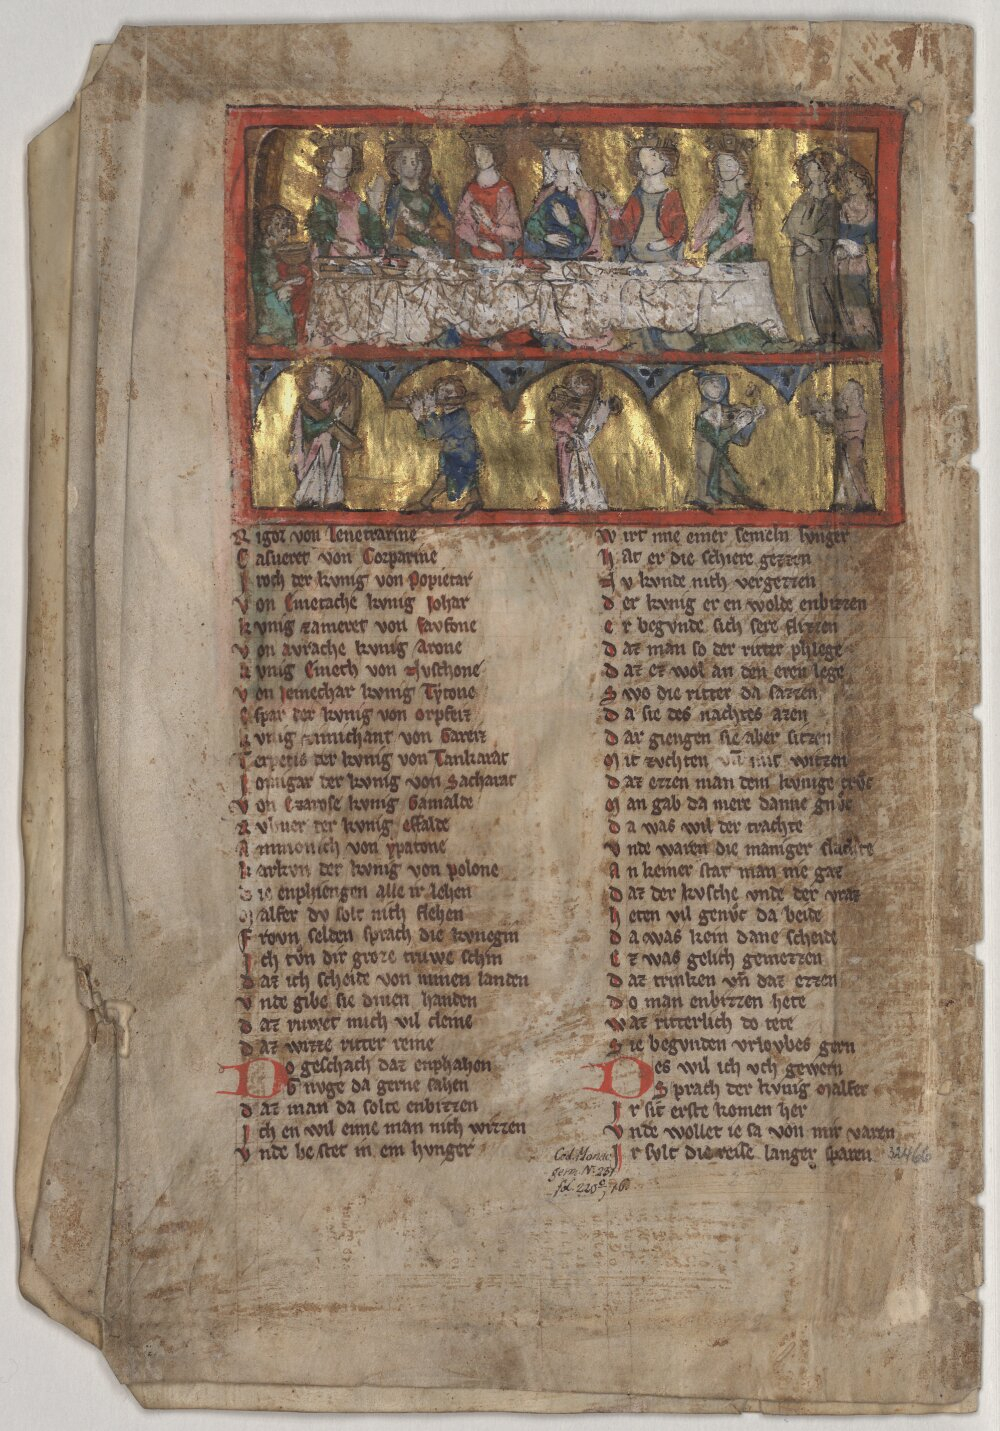 Rigoz von lenetrarine
Casueret von Cozparine
Iroch der kvnig von Popietar
von Cinetache kvnig Iohar
kvnig zameret von favfone
von avrache kvnig Arone
kvnig Cinech von
von Iemechar kvnig Tytone
espar der kvnig von orpfeiz
kvnig von Gareiz
Terpetis der kvnig von Tankarar
der kvnig von Sacharat
von kvnig Gamalde
der kvnig effalde
von ypatone
karkvn der kvnig von polone
Sie enphiengen alle ir lehen
Malfer dv solt nich flehen
frovn selden sprach die kvnegin
Ich tvn dir groze truwe schin
daz ich scheide von minen landen
vnde gibe sie dinen handen
daz ruwet mich vil cleine
daz wizze ritter reine
Do geschach daz enphahen
nvge da gerne sahen
daz man da solte enbizzen
Ich en wil eine man nich wizzen
vnde be stet in em hvnger
wirt nie einer semeln ivnger
hat er die schiere gezzen
Nv kvnde nich vergezzen
der kvnig er en wolde enbizzen
er begvnde sich sere flizzen
daz man so der ritter phlege
daz ez wol an den eren lege
Swo die ritter da sazzen
da sie des nachtes azen
dar giengen sie aber sitzen
Mit zvchten vn mit witzen
daz ezzen man dem kvnige
Man gab da mere danne
da was wil der trachte
vnde waren die maniger slachte
An keiner stat man nie gaz
daz der kvsche vnde der vraz
heten vil genvc da beide
da was kein dane scheide
Ez was gelich gemezzen
daz trinken vn daz ezzen
do man enbizzen hete
waz ritterlich do tete
Sie begvnden vrlovbes gern
Des wil ich vch gewern
Sprach der kvnig Malfer
Ir sit erste komen her
vnde wollet ie sa von mir varen
Ir svlt die reise langer sparen
Cod. Monac.
germ. No. 231
fol. 220